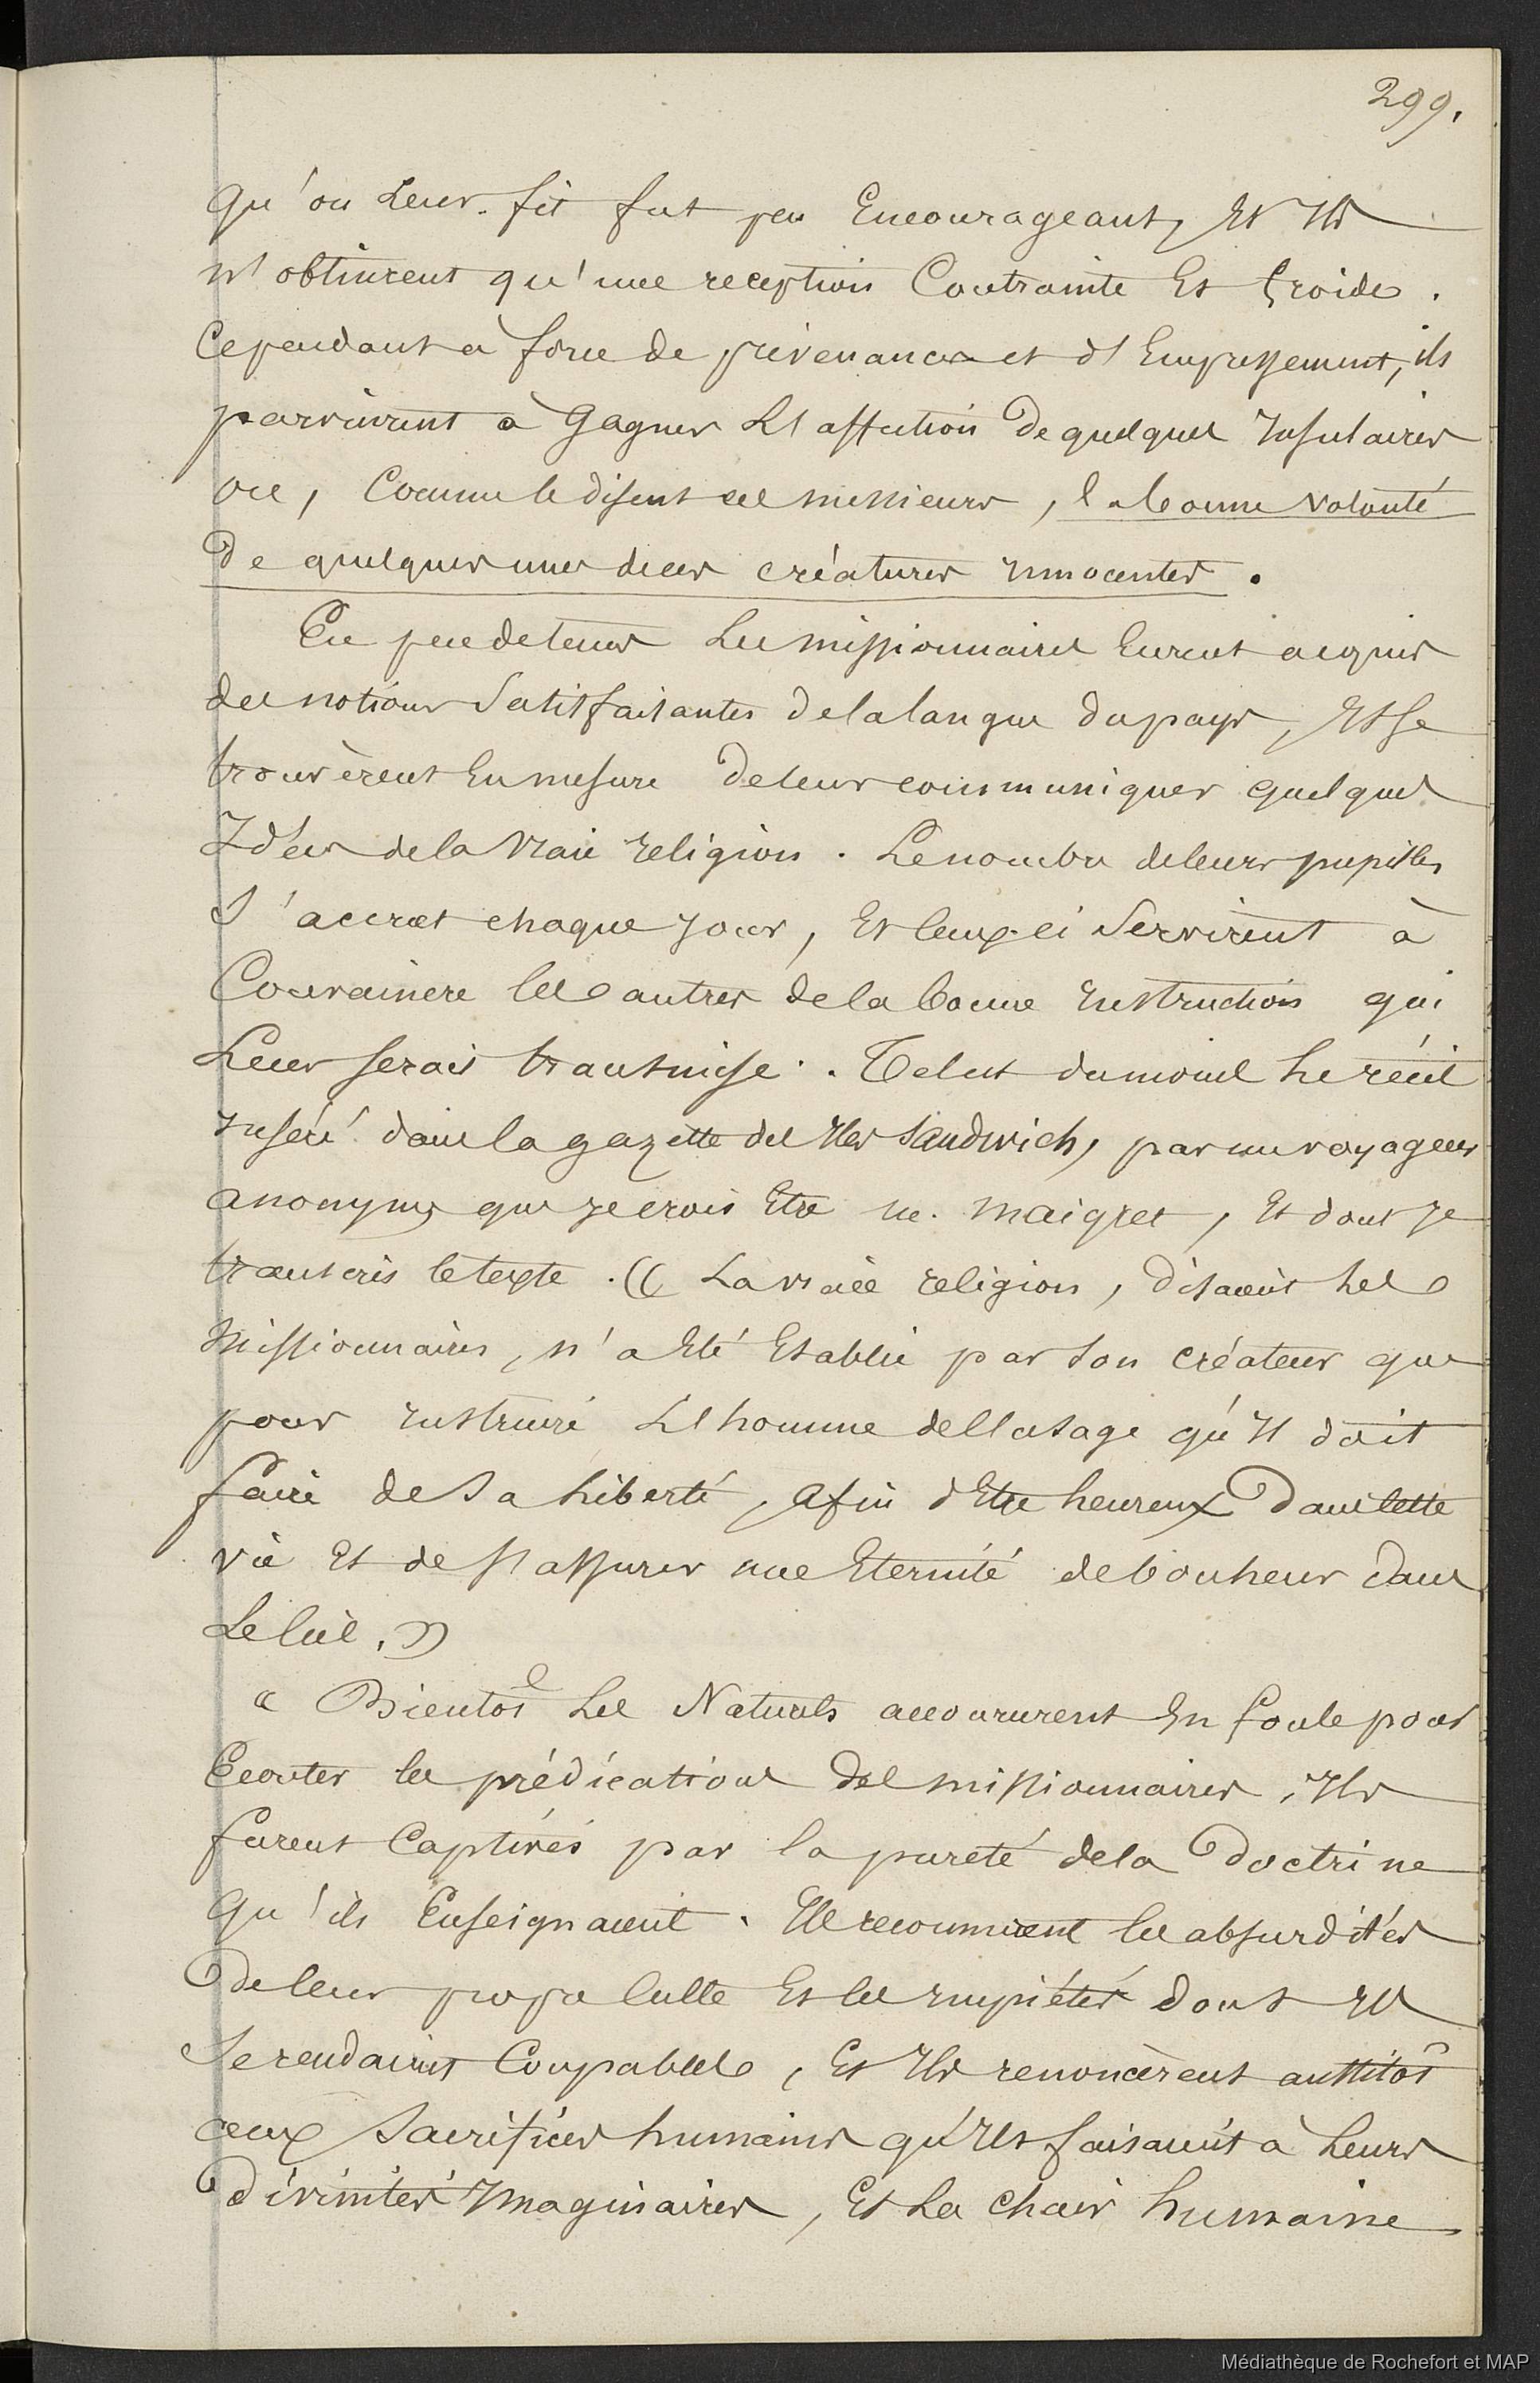 299.
qu'on Leur fit fut peu Encourageant, Et Ils
n'obtinrent qu'une reception Contrainte Et froide.
Cependant à force de prévenances et d'Empressement, ils
parvinrent à Gagner L'affection de quelques Insulaires
ou, Comme le disent ces messieurs, la bonne volonté
De quelques unes de ces créatures innocentes.
En peu de tems Les missionnaires Eurent acquis
des notions Satisfaisantes de la langue du pays, Et se
trouvèrent En mesure de leur communiquer quelques
Idées de la vraie religion. Le nombre de leurs pupilles
S'accrut chaque jour, Et ceux-ci Servirent à
Convaincre les autres de la bonne Instruction qui
Leur serait transmise. Tel est du moins Le récit
inséré dans la gazette des Iles Sandwich, par un voyageur
anonyme que je crois Etre M. Maigret, Et dont je
transcris le texte. « La vraie religion, disaient Les
Missionnaires, n'a Eté Etablie par son créateur que
pour instruire L'homme de l'usage qu'Il doit
faire de Sa Liberté, Afin d'Etre heureux Dans cette
vie Et de s'assurer une Eternité de bonheur dans
Le Ciel. »
« Bientot Les Naturels accoururent En foule pour
Ecouter les prédications des missionnaires, Ils
furent Captivés par la pureté de la Doctrine
qu'ils Enseignaient. Ils reconnurent les absurdités
De leur propre Culte Et les impiétés dont Ils
Se rendaient Coupables, Et Ils renoncèrent aussitôt
aux Sacrifices humains qu'Ils faisaient à Leurs
Divinités Imaginaires, Et La Chair humaine
Médiathèque de Rochefort et MAP